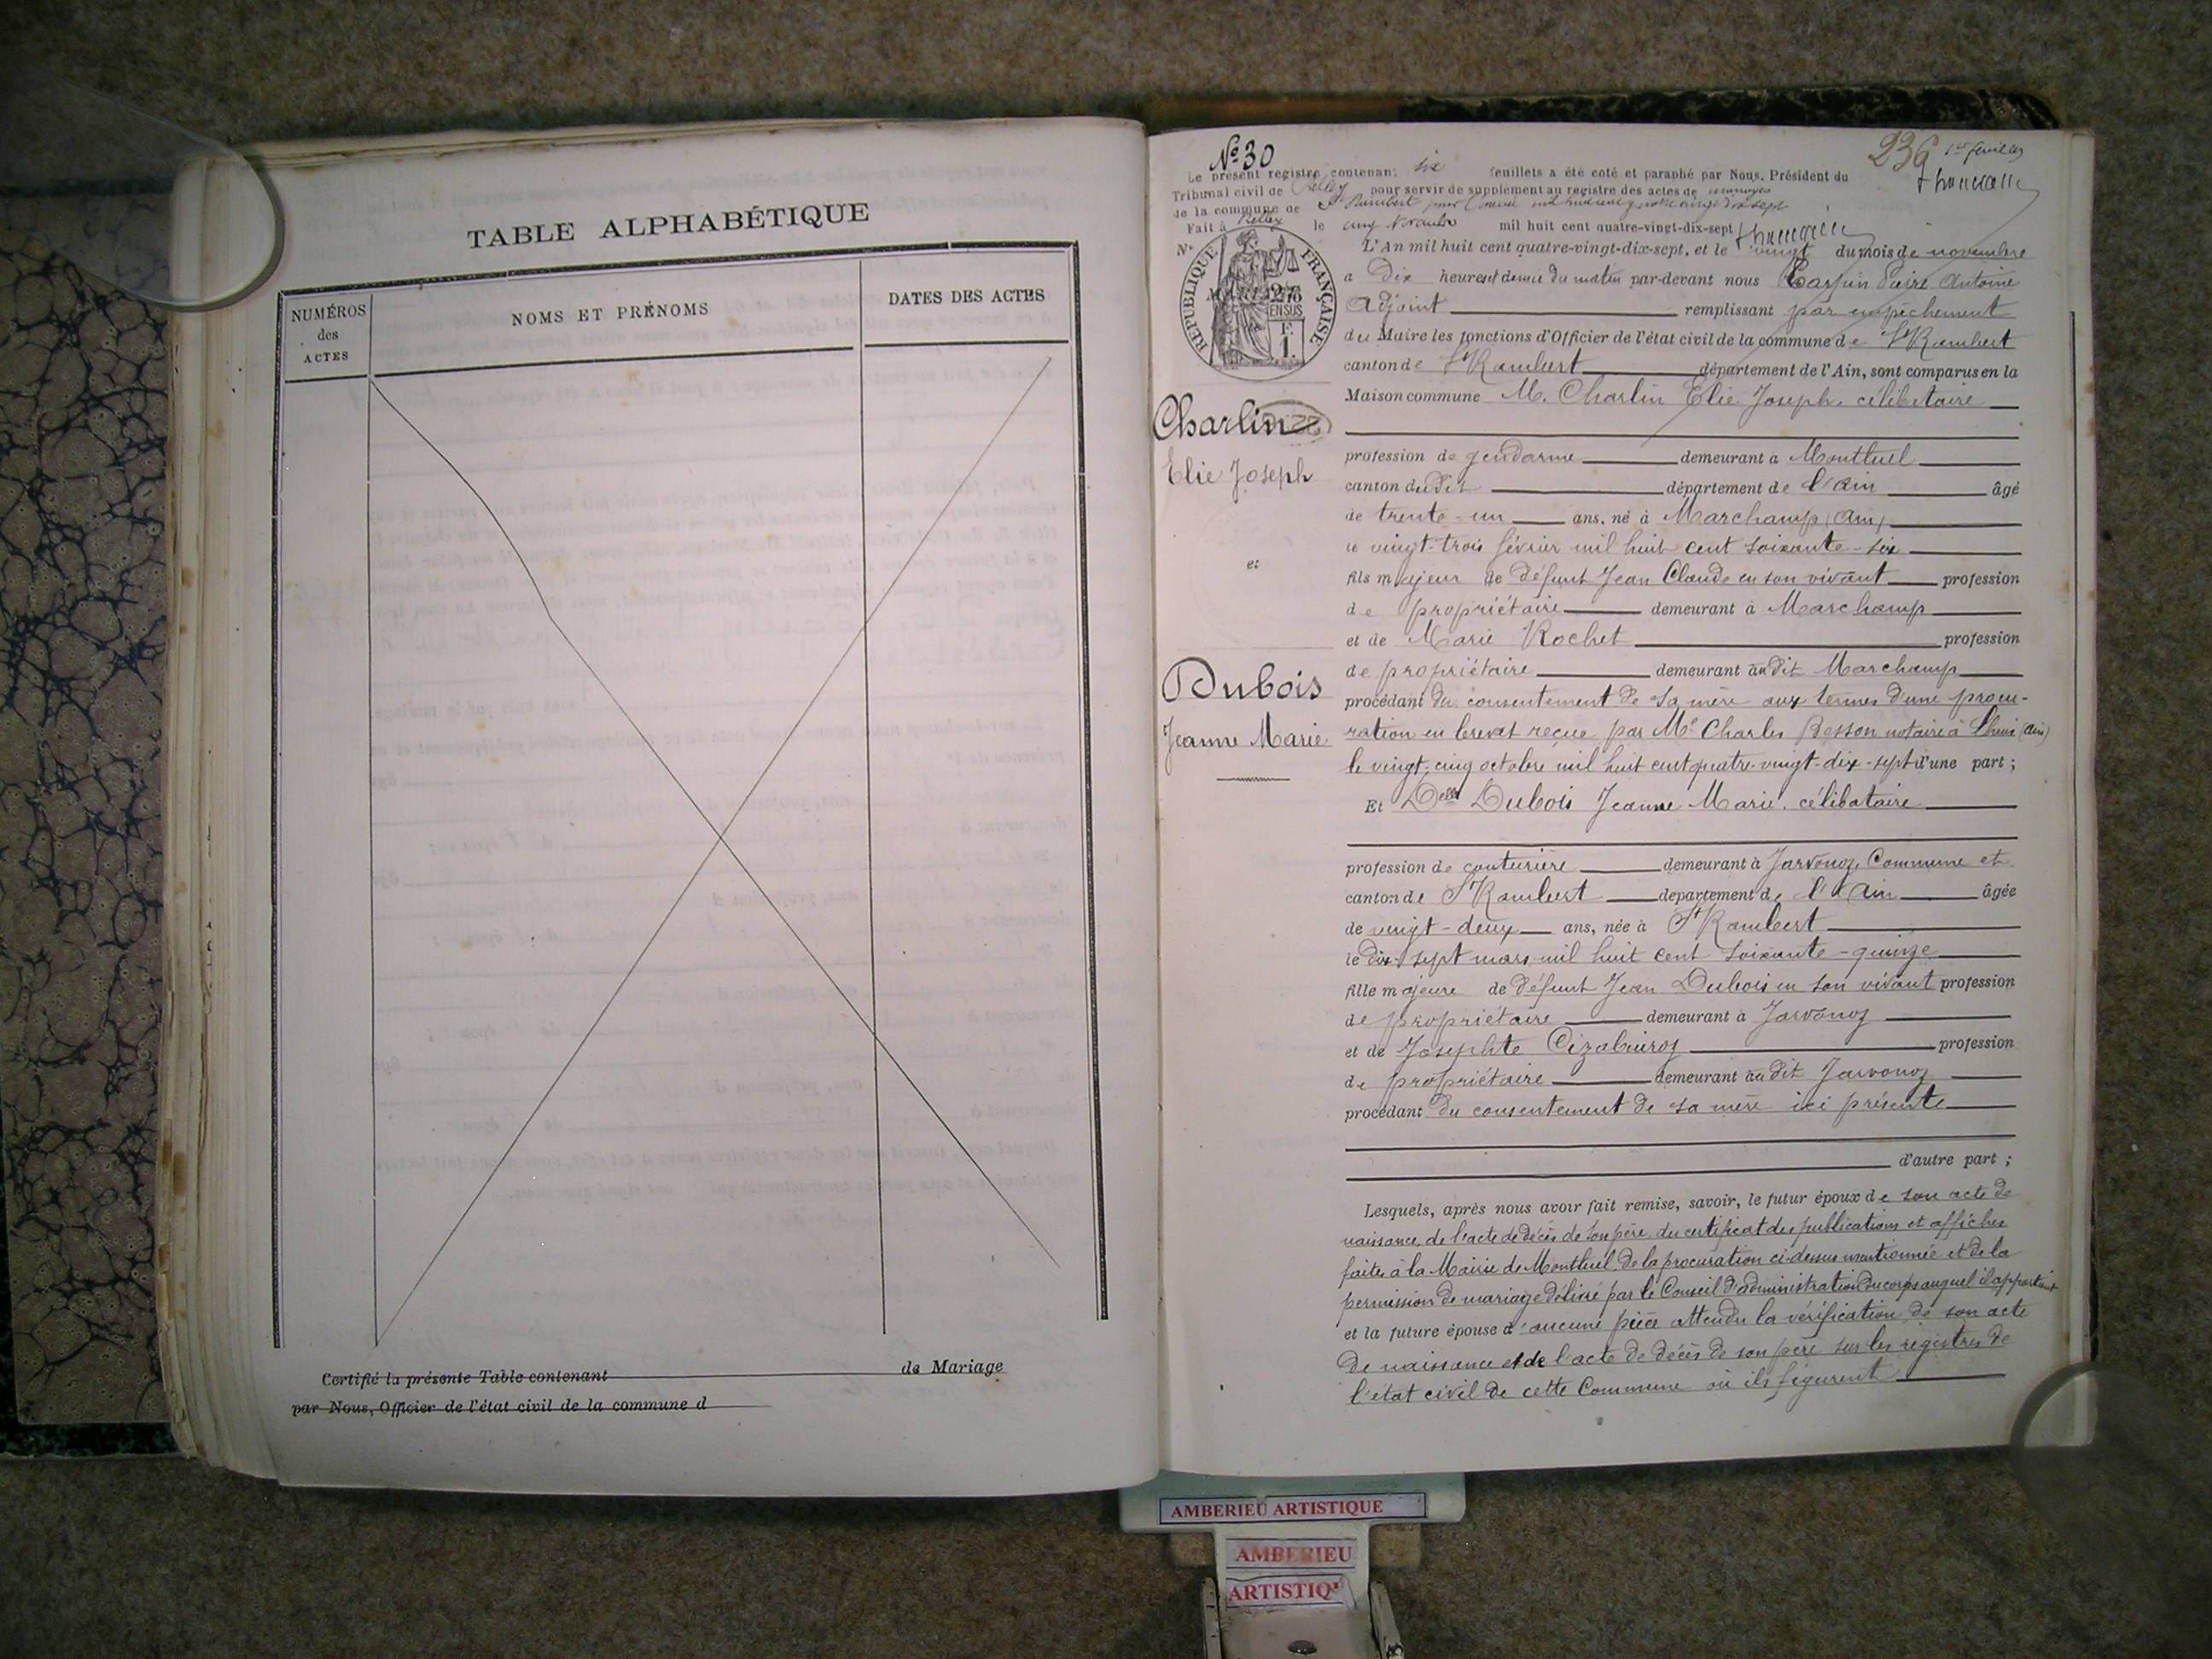 TABLE ALPHABÉTIQUE
NUMÉROS
des
ACTES
NOMS ET PRÉNOMS
DATES DES ACTES
Certifié la présente Table contenant
de Mariage
par Nous, Officier de l'état civil de la commune d
No 30
236
1er feuillet
Le présent registre contenant six feuillets a été coté et paraphé par Nous, Président du
Tribunal civil de Belley pour servir de supplément au registre des actes de mariages
de la commune de St Rambert pour l'année mil huit cent quatre vingt dix sept
Fait à Belley le cinq Novembre mil huit cent quatre-vingt-dix-sept
RÉPUBLIQUE FRANÇAISE
2/10
EN SUS
F.
1.
L'An mil huit cent quatre-vingt-dix-sept, et le vingt du mois de novembre
a dix heures et demie du matin par-devant nous Antoine
Adjoint remplissant par empêchement
du Maire les fonctions d'Officier de l'état civil de la commune de St Rambert
canton de St Rambert département de l'Ain, sont comparus en la
Maison commune M. Charlin Elie Joseph, célibataire
Charlin
Elie Joseph
et
Dubois
Jeanne Marie
profession de gendarme demeurant à Montluel
canton dudit département de l'Ain âgé
de trente-un ans, né à Marchamp (Ain)
le vingt-trois février mil huit cent soixante-six
fils majeur de défunt Jean Claude en son vivant profession
de propriétaire demeurant à Marchamp
et de Marie Rochet profession
de propriétaire demeurant au dit Marchamp
procédant du consentement de sa mère aux termes d'une procu-
ration en brevet reçue par Me Charles Besson notaire à Lhuis (Ain)
le vingt-cinq octobre mil huit cent quatre-vingt-dix-sept d'une part ;
Et Delle Dubois Jeanne Marie, célibataire
profession de couturière demeurant à Javornoz, Commune et
canton de St Rambert département de l'Ain âgée
de vingt-deux ans, née à St Rambert
le dix-sept mars mil huit cent soixante-quinze
fille majeure de défunt Jean Dubois en son vivant profession
de propriétaire demeurant à Javornoz
et de Josephte profession
de propriétaire demeurant au dit Javornoz
procédant du consentement de sa mère ici présente
d'autre part ;
Lesquels, après nous avoir fait remise, savoir, le futur époux de son acte de
naissance, de l'acte de décès de son père, du certificat des publications et affiches
faites à la Mairie de Montluel, de la procuration ci-dessus mentionnée et de la
permission de mariage délivré par le Conseil d'administration du corps auquel il appartient
et la future épouse d'aucune pièce attendu la vérification de son acte
de naissance et de l'acte de décès de son père sur les registres de
l'état civil de cette Commune où ils figurent
AMBERIEU ARTISTIQUE
AMBERIEU
ARTISTIQ